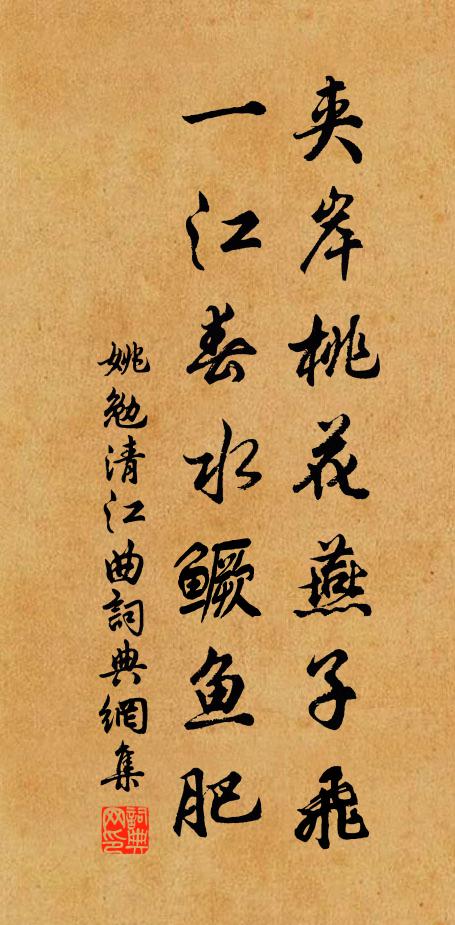 夹岸桃花燕子飛
一江春水鳜鱼肥
姚勉清江曲詞典網集
詞典网印